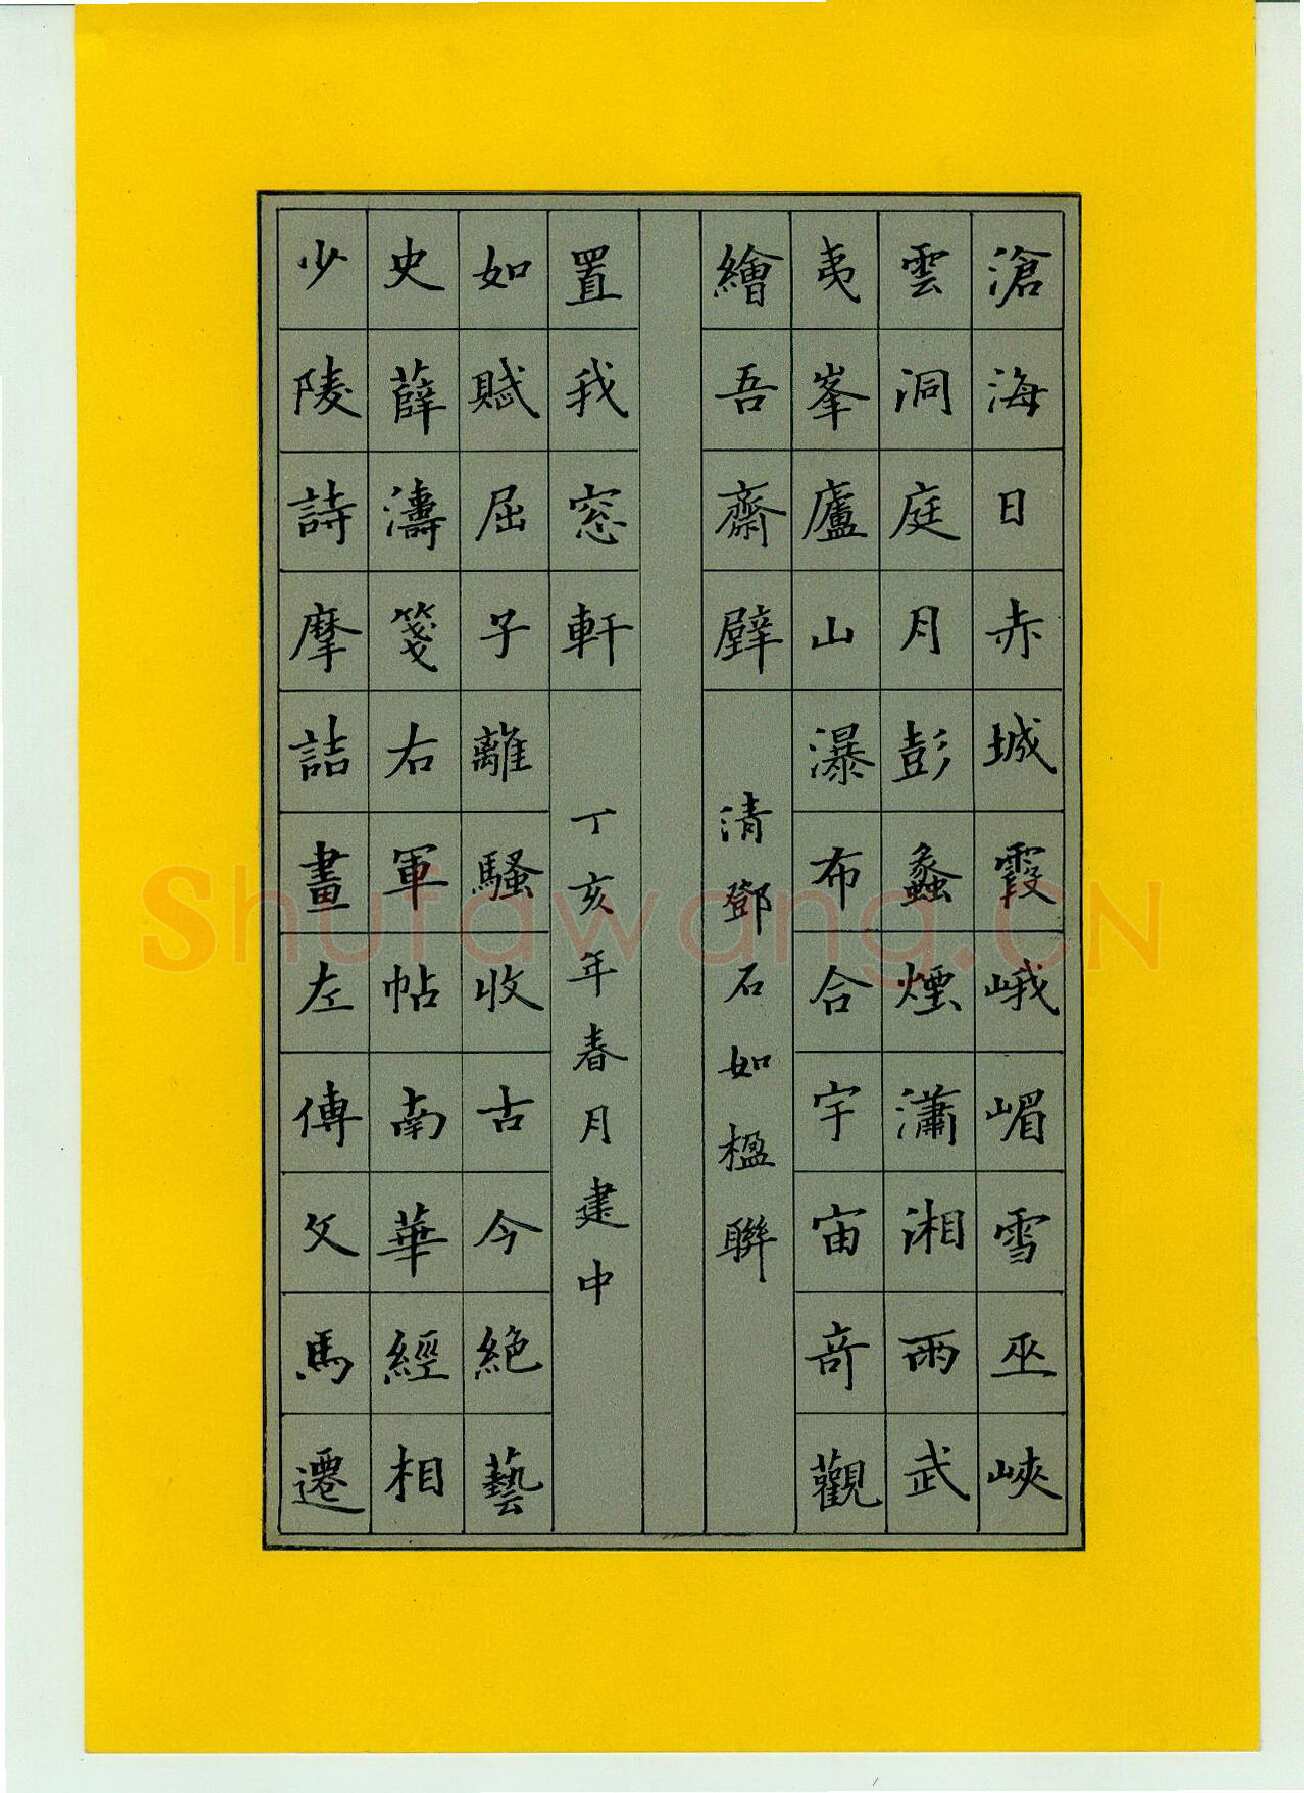 滄海日赤城霞峨嵋雪巫峽
雲洞庭月彭蠡煙瀟湘雨武
夷峯廬山瀑布合宇宙奇觀
繪吾齋壁
清鄧石如楹聯
少陵詩摩詰畫左傳文馬遷
史薛濤箋右軍帖南華經相
如賦屈子離騷收古今絶藝
置我窓軒
丁亥年春月建中
Shufawang.CN